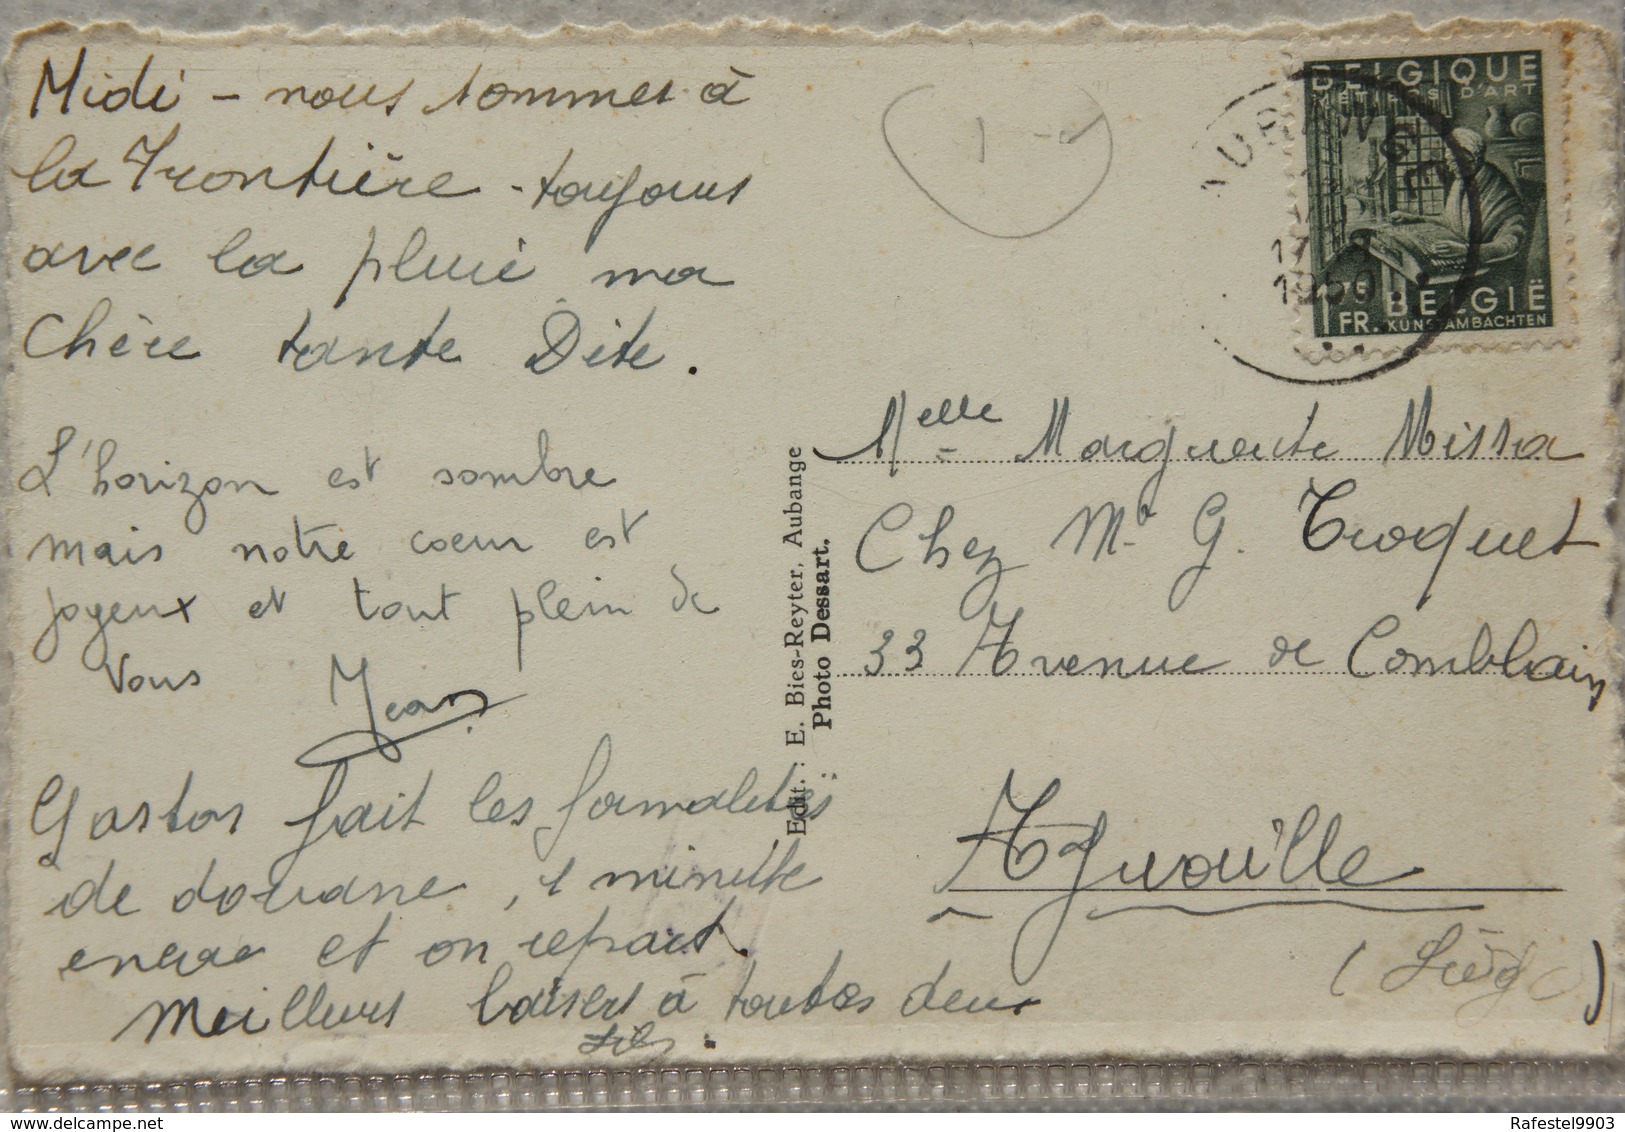 Midi - nous sommes à
la Frontière - toujours
avec la pluie ma
Chère tante Dite.
L'horizon est sombre
mais notre coeur est
joyeux et tout plein de
Vous Jean
Gaston fait les formalités
de douane, 1 minute
encore et on repart.
Meilleurs baisers à toutes deux
Edit. : E. Bies-Reyter, Aubange
Photo Dessart.
BELGIQUE
MÉTIERS D'ART
AUBANGE
17
1950
1.75
FR.
BELGIË
KUNSTAMBACHTEN
Melle Marguerite Missa
Chez Mr G. Troquet
33 Avenue de Comblain
Aguaille
(Liège)
www.delcampe.net
Rafestel9903